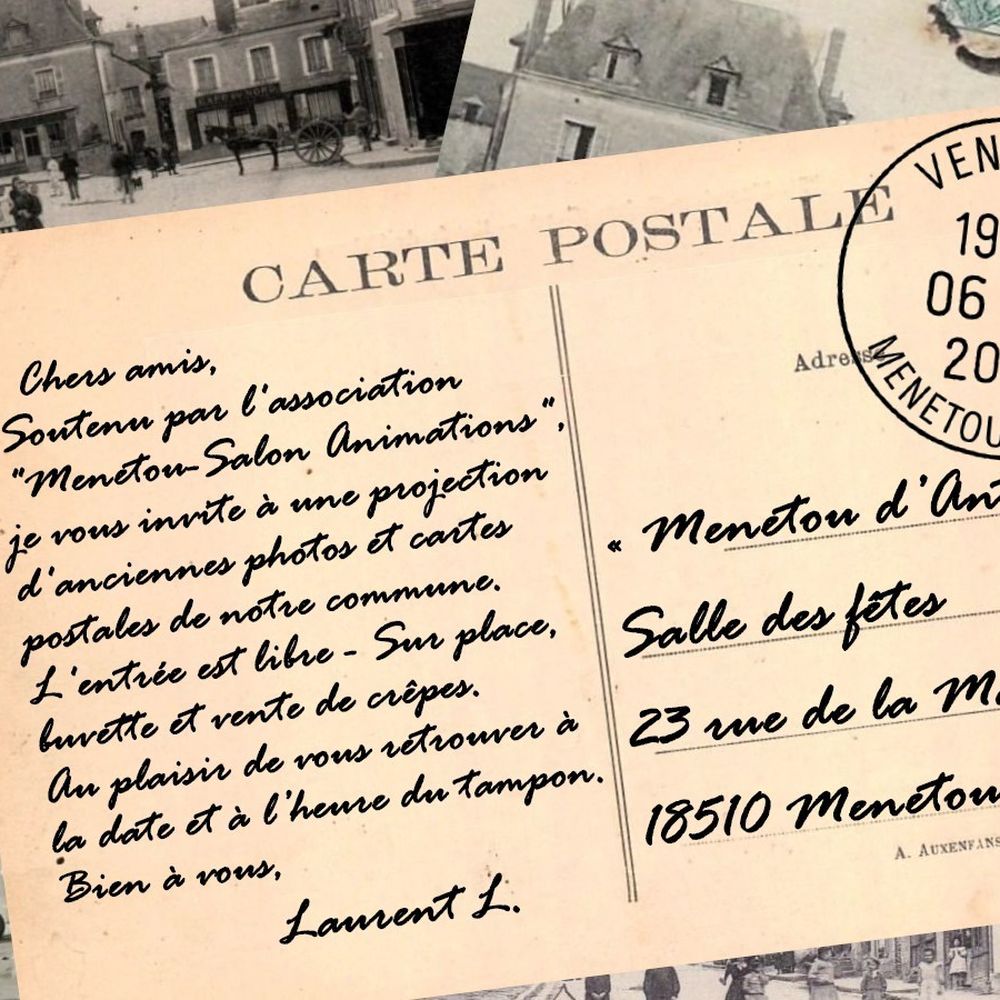 CARTE POSTALE
Chers amis,
Soutenu par l'association
"Menetou-Salon Animations",
je vous invite à une projection
d'anciennes photos et cartes
postales de notre commune.
L'entrée est libre - Sur place,
buvette et vente de crêpes.
Au plaisir de vous retrouver à
la date et à l'heure du tampon.
Bien à vous,
Laurent L.
VEN
19
06
20
MENETOU
Adresse
« Menetou d'Ant
Salle des fêtes
23 rue de la M
18510 Menetou
A. AUXENFANS